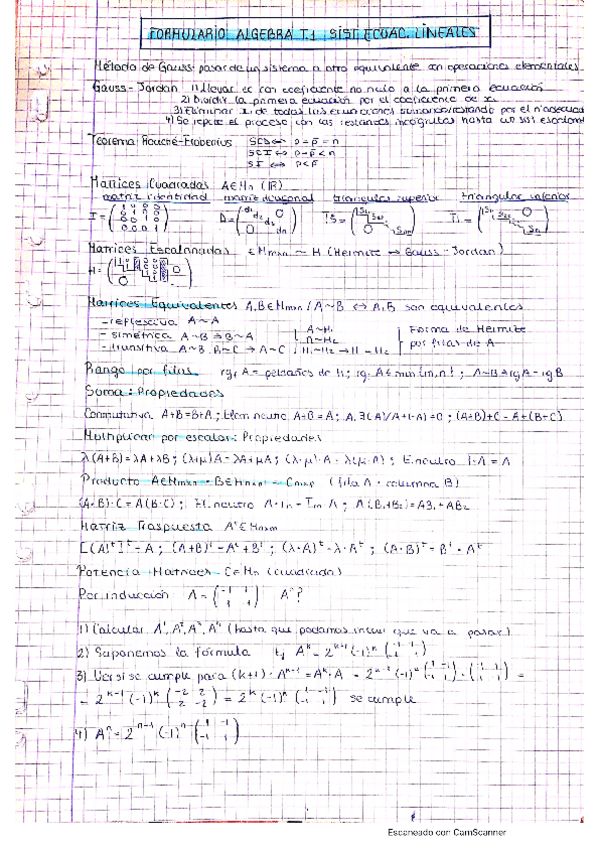 FORMULARIO ALGEBRA T.1 SIST ECUAC. LINEALES
Método de Gauss: pasar de un sistema a otro equivalente con operaciones elementales
Gauss-Jordan 1) llevar ec con coeficiente no nulo a la primera ecuación
2) dividir la primera ecuación por el coeficiente de x₁
3) Eliminar x₁ de todas las ecuaciones sumando/restando por el nº adecuado
4) Se repite el proceso con las restantes incógnitas hasta un sist escalonado
Teorema Rouché-Frobenius SCD ↔ p = p̄ = n
SCI ↔ p = p̄ < n
SI ↔ p < p̄
Matrices Cuadradas A∈Mn (ℝ)
matriz identidad matriz diagonal triangular superior triangular inferior
Matrices Escalonadas ∈ Mmxn ~ H (Hermite → Gauss-Jordan)
Matrices Equivalentes A,B∈Mmxn / A~B ↔ A,B son equivalentes
- reflexiva A~A
- simétrica A~B ⇒ B~A
- transitiva A~B, B~C → A~C
Forma de Hermite
por filas de A
Rango por filas rg A = peldaños de H; rg A ≤ min{m,n}; A~B ⇒ rg A = rg B
Suma: Propiedades
Conmutativa A+B=B+A; Elem neutro A+0=A; A,∃(-A)/A+(-A)=0; (A+B)+C=A+(B+C)
Multiplicar por escalar: Propiedades
λ(A+B)=λA+λB; (λ+μ)A=λA+μA; (λ·μ)·A=λ(μ·A); E.neutro 1·A=A
Producto A∈Mmxn · B∈Mnxp = Cmxp (fila A · columna B)
(A·B)·C=A(B·C); El.neutro A·In=Im·A; A(B₁+B₂)=AB₁+AB₂
Matriz Traspuesta Aᵗ∈Mnxm
[(A)ᵗ]ᵗ=A; (A+B)ᵗ=Aᵗ+Bᵗ; (λ·A)ᵗ=λ·Aᵗ; (A·B)ᵗ=Bᵗ·Aᵗ
Potencia Matrices C∈Mn (cuadrada)
Por inducción A = (-1 1 / 1 -1) Aⁿ?
1) Calcular A¹, A², A³, A⁴ (hasta que podamos intuir que va a pasar)
2) Suponemos la fórmula
3) Ver si se cumple para (k+1)
se cumple
4) Aⁿ = 2ⁿ⁻¹ (-1)ⁿ
Escaneado con CamScanner